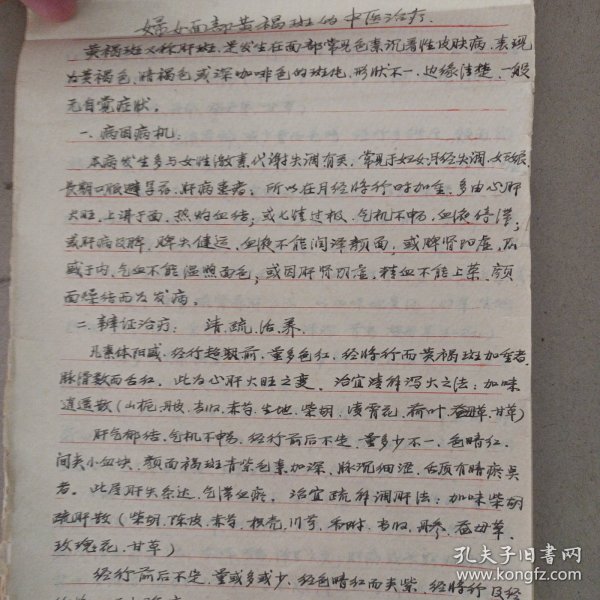 妇女面部黄褐斑的中医治疗
黄褐斑又称肝斑，是发生在面部常见色素沉着性皮肤病，表现
为黄褐色、暗褐色或深咖啡色的斑片，形状不一，边缘清楚，一般
无自觉症状。
一、病因病机：
本病发生多与女性激素代谢失调有关，常见于妇女月经失调、妊娠、
长期口服避孕药、肝病患者；所以在月经将行时加重，多由心肝
火旺，上讲于面，热灼血结；或七情过极，气机不畅，血液瘀滞；
或肝病及脾，脾失健运，血液不能润泽颜面；或脾肾阳虚，
或于内，气血不能温煦面色；或因肝肾阴虚，精血不能上荣，颜
面燥结而为发病。
二、辨证治疗：清.疏.治.养.
凡素体阳盛，经行超期前，量多色红，经将行而黄褐斑加重者，
脉滑数而舌红，此为心肝火旺之变，治宜清肝泻火之法；加味
逍遥散（山栀、丹皮、当归、赤芍、生地、柴胡、凌霄花、荷叶、益母草、甘草）
肝气郁结，气机不畅，经行前后不定，量多少不一，色暗红，
间夹小血块，颜面褐斑青紫色素加深，脉沉细涩，舌质有暗瘀点
者。此属肝失条达，气滞血瘀，治宜疏肝调肝法；加味柴胡
疏肝散（柴胡、陈皮、赤芍、枳壳、川芎、香附、当归、丹参、益母草、
玫瑰花、甘草）
经行前后不定，量或多或少，经色暗红而夹紫，经将行及经
孔夫子旧书网
www.kongfz.com